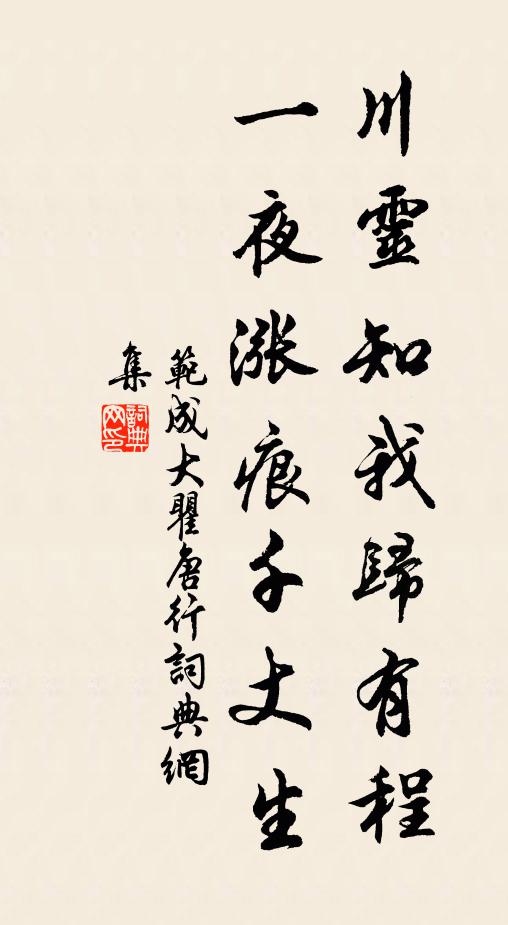 川靈知我歸有程
一夜漲痕千丈生
範成大瞿唐行詞典網
集
詞典
网印